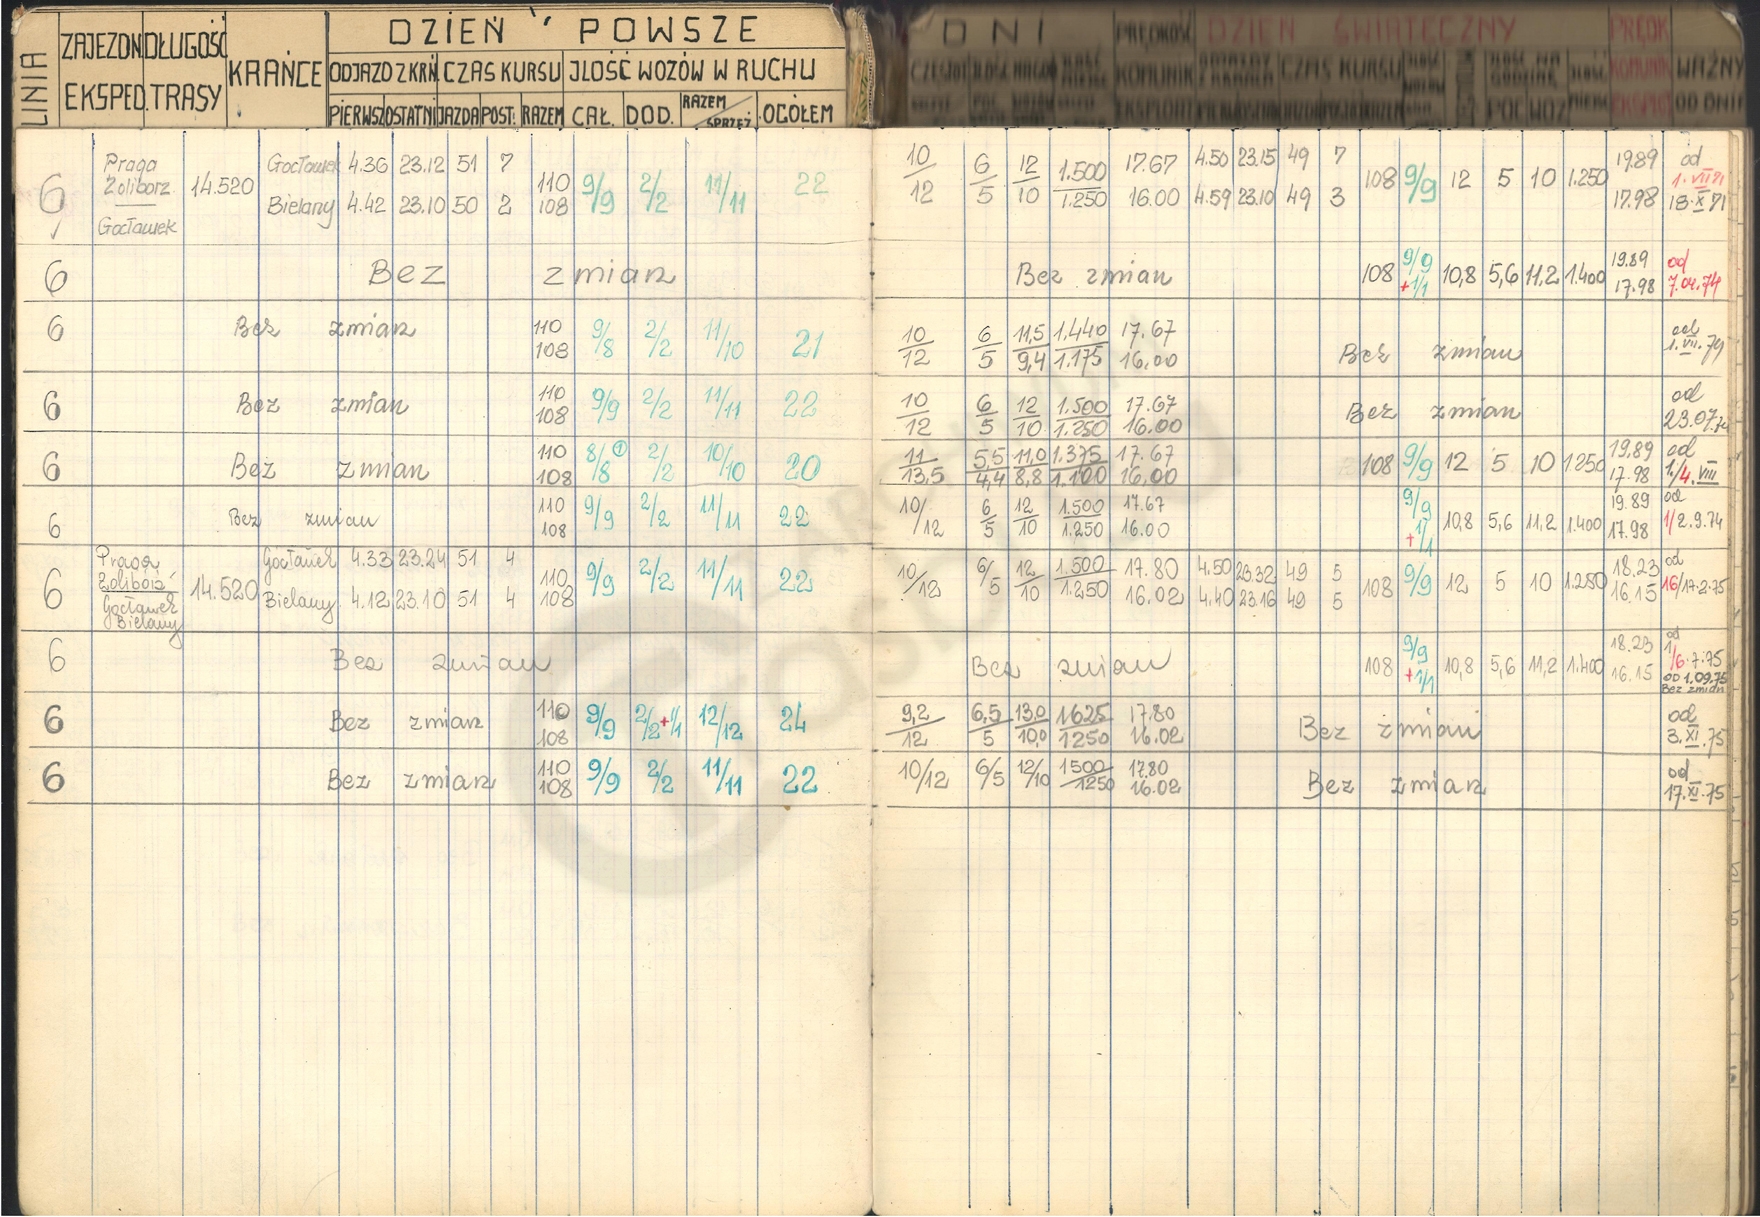 LINIA
ZAJEZDN. EKSPED.
DŁUGOŚĆ TRASY
KRAŃCE
DZIEŃ POWSZE
ODJAZD Z KRŃ CZAS KURSU JLOŚĆ WOZÓW W RUCHU
PIERWSZ OSTATNI JAZDA POST. RAZEM CAŁ. DOD. RAZEM/SPRZĘŻ. OGÓŁEM
DNI PRĘDKOŚĆ DZIEŃ ŚWIĄTECZNY PRĘDK
KOMUNIK CZAS KURSU WAŻNY
EKSPLOAT OD DNIA
6 Praga Żoliborz Gocławek 14.520 Gocławek 4.36 23.12 51 7 110 9/9 2/2 11/11 22 10/12 6/5 12/10 1.500 17.67 4.50 23.15 49 7 108 9/9 12 5 10 1.250 19.89 od 1.VII 71
Bielany 4.42 23.10 50 2 108 1.250 16.00 4.59 23.10 49 3 17.98 18.X.71
6 Bez zmian Bez zmian 108 9/9 +1/1 10,8 5,6 11,2 1.400 19.89 17.98 od 7.04.74
6 Bez zmian 110 108 9/8 2/2 11/10 21 10/12 6/5 11,5/9,4 1.440/1.175 17.67 16.00 Bez zmian od 1.VII.74
6 Bez zmian 110 108 9/9 2/2 11/11 22 10/12 6/5 12/10 1.500/1.250 17.67 16.00 Bez zmian od 23.07.74
6 Bez zmian 110 108 8/8 ① 2/2 10/10 20 11/13,5 5,5/4,4 11,0/8,8 1.375/1.100 17.67 16,00 108 9/9 12 5 10 1250 19.89 17.98 od 1./4.VIII
6 Bez zmian 110 108 9/9 2/2 11/11 22 10/12 6/5 12/10 1.500/1.250 17.67 16.00 9/9 +1/1 10,8 5,6 11,2 1.400 19.89 17.98 od 1/2.9.74
6 Praga Żoliborz Gocławek Bielany 14.520 Gocławek 4.33 23.24 51 4 110 9/9 2/2 11/11 22 10/12 6/5 12/10 1.500 17.80 4.50 23.32 49 5 108 9/9 12 5 10 1.250 18.23 od 16/17.2.75
Bielany 4.12 23.10 51 4 108 1.250 16.02 4.40 23.16 49 5 16.15
6 Bez zmian Bez zmian 108 9/9 +1/1 10,8 5,6 11,2 1.400 18.23 16.15 od 1/6.7.75 OD 1.09.75 Bez zmian
6 Bez zmian 110 108 9/9 2/2+1/1 12/12 24 9,2/12 6,5/5 13,0/10,0 1625/1250 17.80 16.02 Bez zmian od 3.XI.75
6 Bez zmian 110 108 9/9 2/2 11/11 22 10/12 6/5 12/10 1500/1250 17.80 16.02 Bez zmian od 17.XI.75